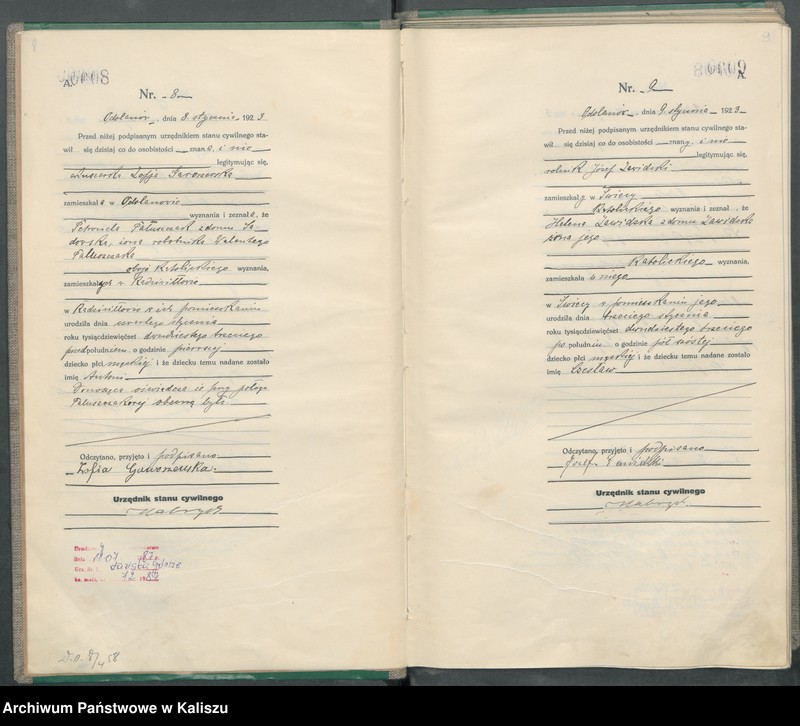 A.
00008
Nr. 8
Odolanów, dnia 8. stycznia 1923
Przed niżej podpisanym urzędnikiem stanu cywilnego sta-
wił się dzisiaj co do osobistości znana, i nie
legitymując się,
Zofja Gawronerska
zamieszkała w Odolanowie
wyznania i zeznała, że
Petronela Paluszczak z domu
żona robotnika Walentego
Paluszczaka
oboje katolickiego wyznania,
zamieszkałych w
w w ich pomieszkaniu
urodziła dnia stycznia
roku tysiącdziewięćset dwudziestego trzeciego
przedpołudniem o godzinie pierwszej
dziecko płci męskiej i że dziecku temu nadane zostało
imię Antoni
Donosząca oświadcza iż przy połogu
Paluszczakowej obecną była.
Odczytano, przyjęto i podpisano
Zofia Gawronerska.
Urzędnik stanu cywilnego
D.O. 8/4 58
00009
A
Nr. 9
Odolanów, dnia 9. stycznia 1923
Przed niżej podpisanym urzędnikiem stanu cywilnego sta-
wił się dzisiaj co do osobistości znany, i nie
legitymując się,
rolnik Józef Zawidzki
zamieszkały w Świecy
katolickiego wyznania i zeznał, że
Helena Zawidzka z domu
żona jego
katolickiego wyznania,
zamieszkała u niego
w Świecy w pomieszkaniu jego
urodziła dnia trzeciego stycznia
roku tysiącdziewięćset dwudziestego trzeciego
po południu o godzinie pół
dziecko płci męskiej i że dziecku temu nadane zostało
imię Czesław
Odczytano, przyjęto i podpisano
Józef Zawidzki
Urzędnik stanu cywilnego
Archiwum Państwowe w Kaliszu